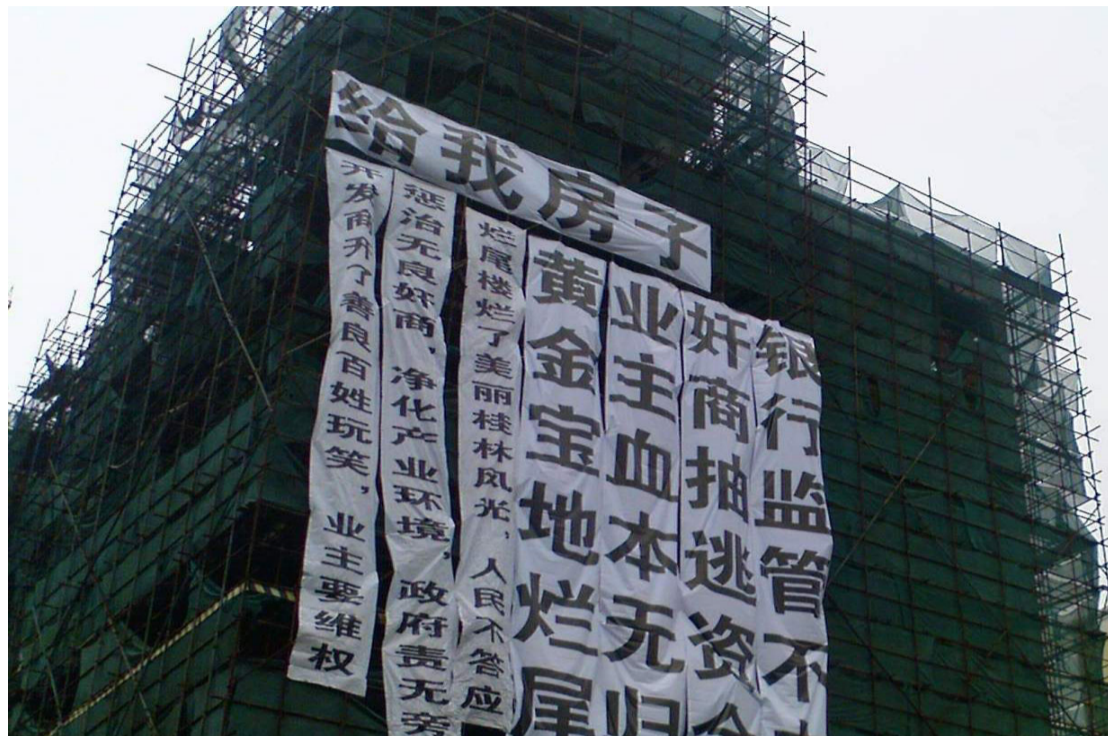 给我房子
开发商开了善良百姓玩笑，业主要维权
惩治无良奸商，净化产业环境，政府责无旁
烂尾楼烂了美丽桂林风光，人民不答应
黄金宝地烂尾
业主血本无归
奸商抽逃资金
银行监管不